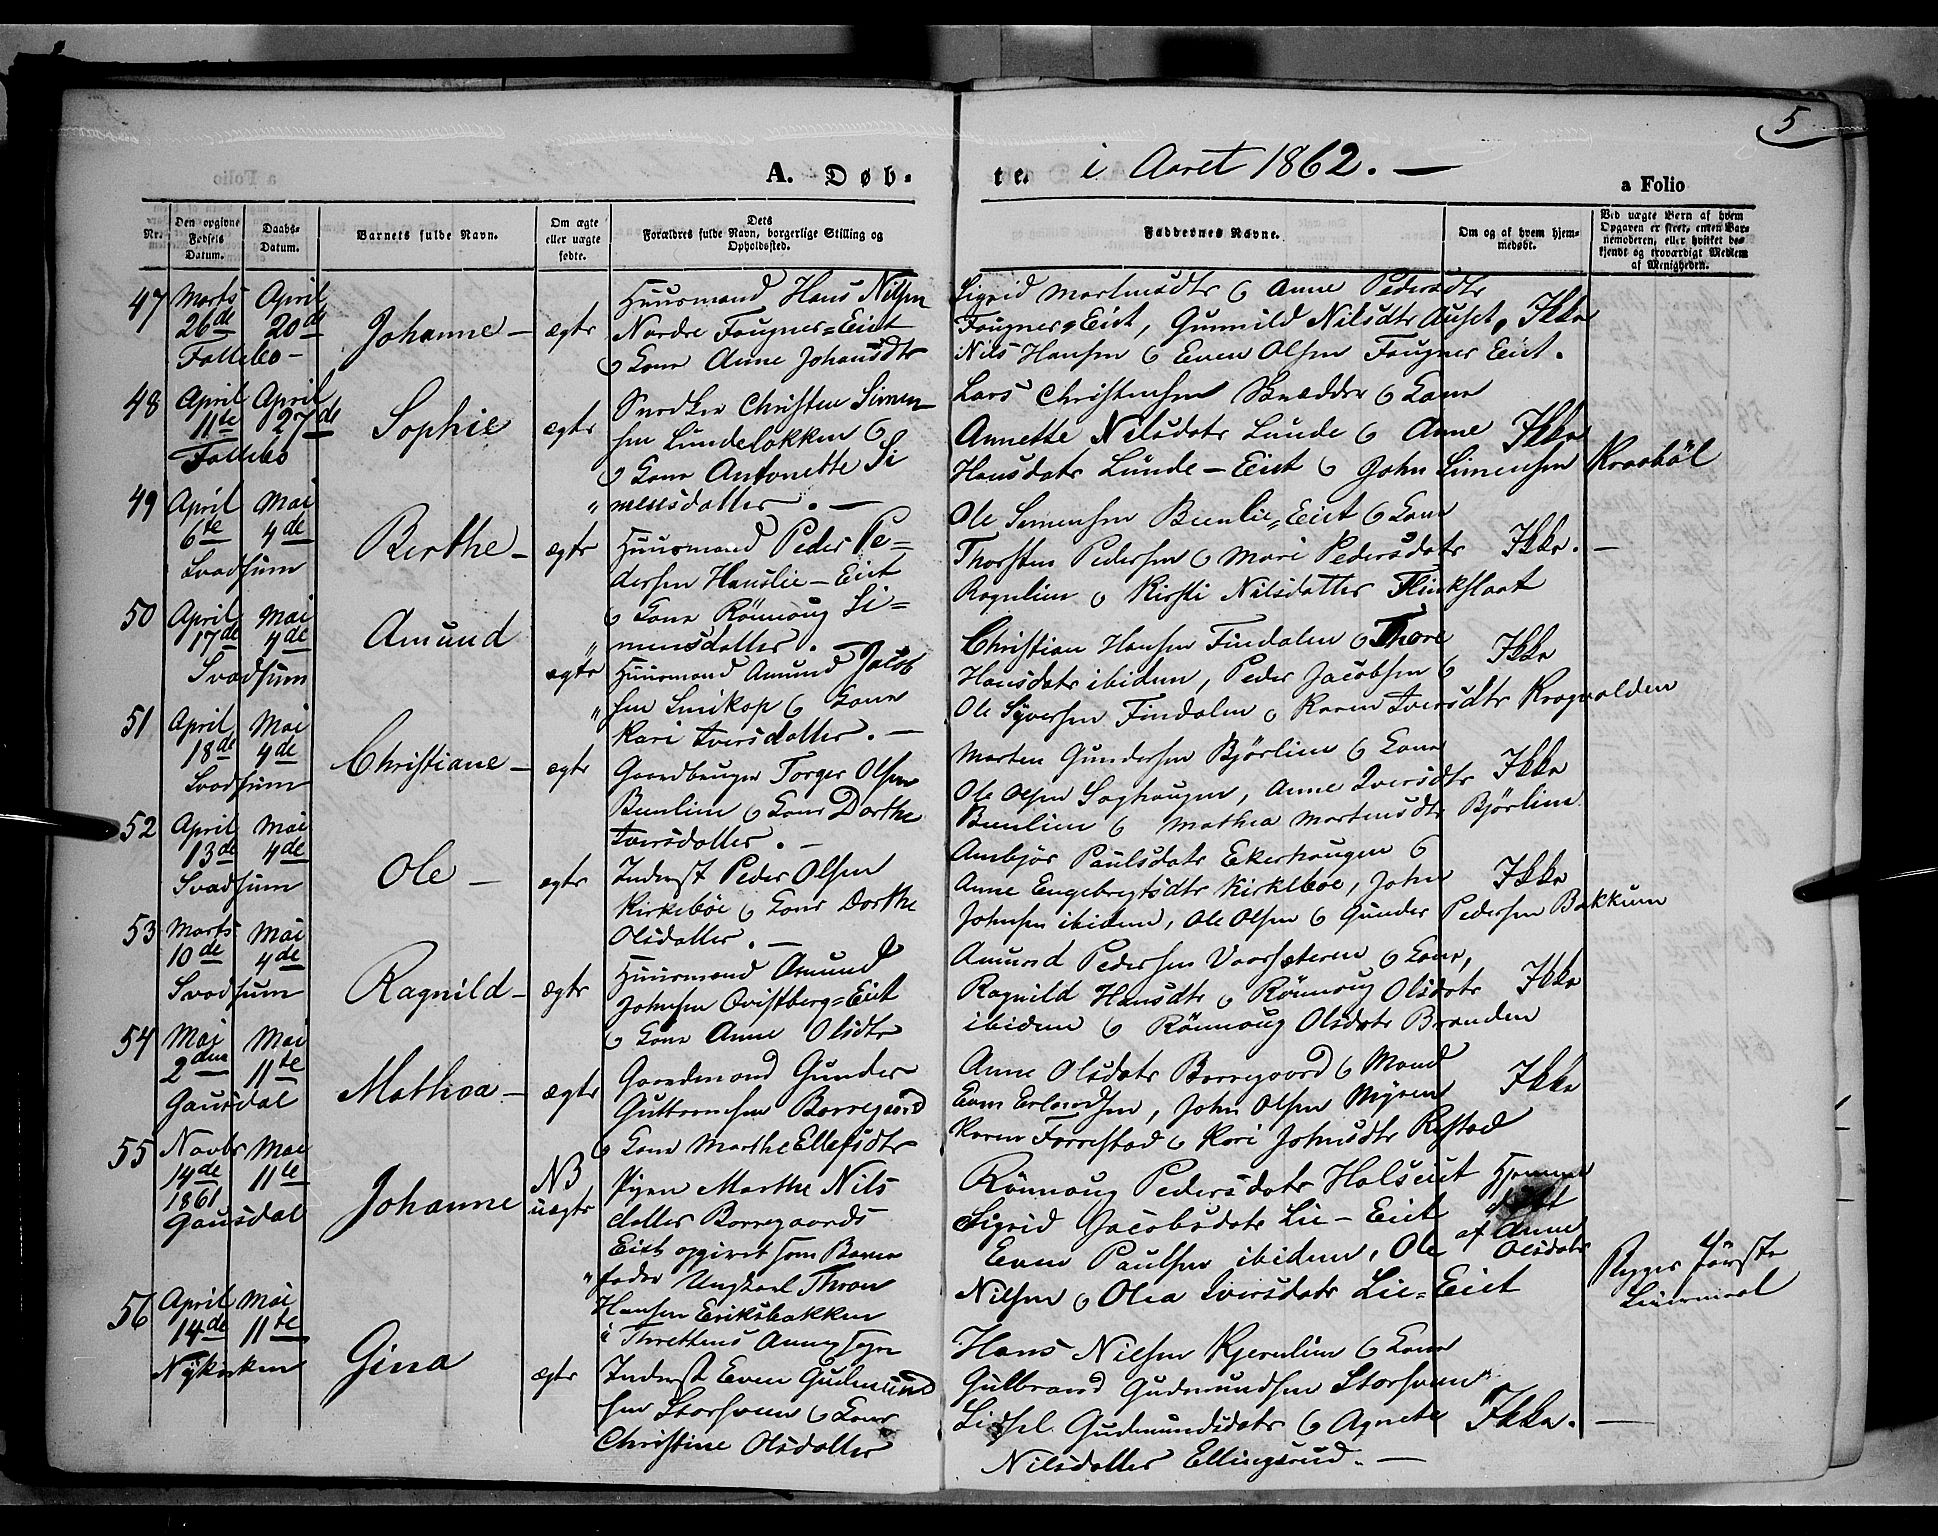 5
A. Døb-
te. i Aaret 1862. —
a Folio
Nr.
Den opgivne Fødsels Datum.
Daabs-Datum.
Barnets fulde Navn.
Om ægte eller uægte født.
Dets Forældres fulde Navn, borgerlige Stilling og Opholdssted.
Faddernes Navne.
Om og af hvem hjemmedøbt.
Ved uægte Børn af hvem Opgaven er skeet, enten Barnemoderen, eller hvilket bekjendt og troværdigt Medlem af Menigheden.
47 Marts 26de Follebo – April 20de
Johanne –
ægte
Huusmand Hans Nilsen
Nordre Fougner=Eiet
og Kone Anne Johansdtr
Sigrid Martinsdtr og Anne Pedersdtr
Fougner=Eiet, Gunnild Nilsdtr
Nils Hansen og Even Olsen Fougner Eiet.
Ikke
48 April 11te Follebo April 27de
Sophie
ægte
Snedker Christen Simen
sen Lundeløkken og
Kone Antonette Si
mensdatter. —
Lars Christensen og Kone
Annette Nilsdatr Lunde og Anne
Hansdatr Lunde – Eiet og John Simensen Kraabøl
Ikke
49 April 6te Svadsum Mai 4de
Berthe –
ægte
Huusmand Peder Pe=
dersen Hauslie – Eiet
og Kone Rønnoug Si=
mensdatter. —
Ole Simensen Bunlie=Eiet og Kone
Thorsten Pedersen og Mari Pedersdatr
og Kirsti Nilsdatter
Ikke. –
50 April 17de Svadsum Mai 4de
Amund
ægte
Huusmand Amund Jacob
sen og Kone
Kari Iversdatter. –
Christian Hansen Findalen og Thore
Hansdatr ibidem, Peder Jacobsen og
Ole Syversen Findalen og Karen Iversdtr Kragvolden
Ikke
51 April 18de Svadsum Mai 4de
Christiane –
ægte
Gaardbruger Torger Olsen
Bunlien og Kone Dorthe
Iversdatter. –
Morten Gundersen Bjørlien og Kone
Ole Olsen Soghaugen, Anne Iversdtr
Bunlien og Mathea Mortensdtr Bjørlien
Ikke
52 April 13de Svadsum Mai 4de
Ole –
ægte
Inderst Peder Olsen
Kirkebøe og Kone Dorthe
Olsdatter. –
Ambjør Paulsdatr Ekerhaugen og
Anne Engebregtsdtr Kirkebøe, John
Johnsen ibidem, Ole Olsen og Gunder Pedersen Bakkum
Ikke
53 Marts 10de Svadsum Mai 4de
Ragnild –
ægte
Huusmand Amund
Johnsen Qvistberg=Eiet
og Kone Anne Olsdtr
Amund Pedersen Vaarsæteren og Kone,
Ragnild Hansdtr og Rønnoug Olsdatr
ibidem og Rønnoug Olsdatr Branden
Ikke
54 Mai 2den Gausdal Mai 11te
Mathea –
ægte
Gaardmand Gunder
Guttormsen Borregaard
og Kone Marthe Ellefsdtr
Anne Olsdatr Borregaard og Mand
Even Erlandsen, John Olsen Myren
Karen Forrestad og Kari Johnsdtr Restad
Ikke
55 Novbr 14de 1861 Gausdal Mai 11te
Johanne
NB
uægte
Pigen Marthe Nils
datter Borregaards
Eiet opgivet som Barne
fader Ungkarl Thron
Hansen Eriksbakken
i Thretthens Annexsogn
Rønnoug Pedersdatr Holseiet
Sigrid Jacobsdatr Lie – Eiet
Even Paulsen ibidem, Ole
Nilsen og Olea Iversdatr Lie=Eiet
Hjemme
døbt
af Anne
Olsdatr
56 April 14de Nykirken Mai 11te
Gina
ægte
Inderst Even Gudmund
sen Storsveen og Kone
Christine Olsdatter
Hans Nilsen Kjernlien og Kone
Gulbrand Gudmundsen Storsveen
Sidsel Gudmundsdatr og Agnete
Nilsdatter Ellingsrud. —
Ikke. —